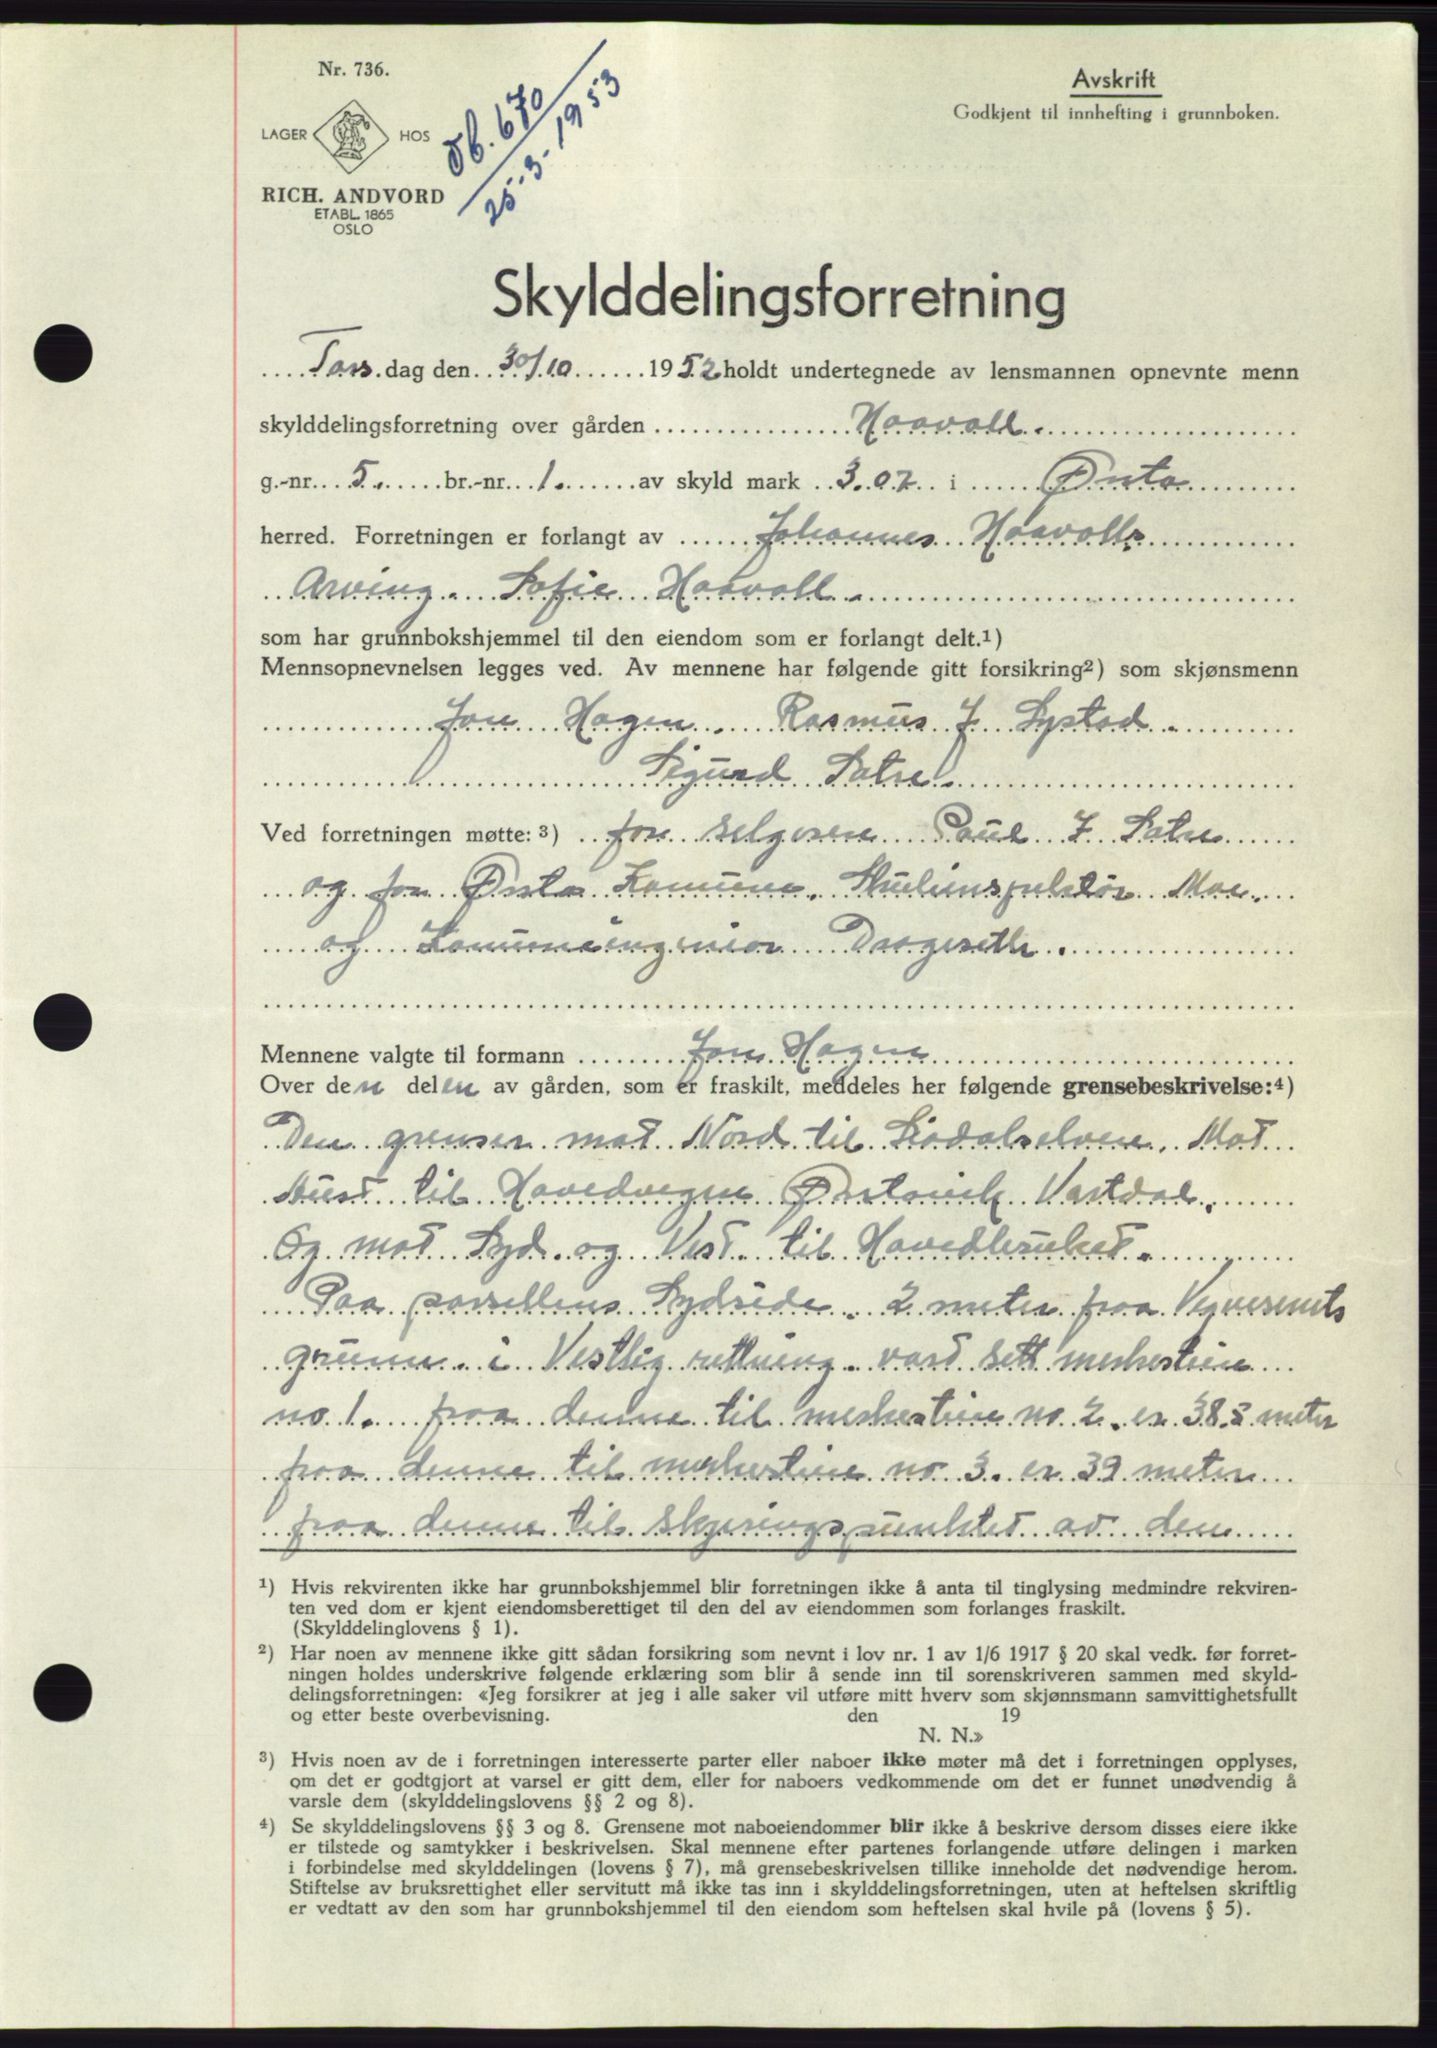 Nr. 736.
LAGER HOS
RICH. ANDVORD
ETABL. 1865
OSLO
Db. 670
25-3-1953
Avskrift
Godkjent til innhefting i grunnboken.
Skylddelingsforretning
Tors dag den 30/10 1952 holdt undertegnede av lensmannen opnevnte menn
skylddelingsforretning over gården Haavoll.
g.-nr. 5. br.-nr. 1. av skyld mark 3.07 i Ørsta
herred. Forretningen er forlangt av Johannes Haavolls
Arving. Sofie Haavoll.
som har grunnbokshjemmel til den eiendom som er forlangt delt.¹)
Mennsopnevnelsen legges ved. Av mennene har følgende gitt forsikring²) som skjønsmenn
Jon Hagen. Rasmus J Systad.
Sigurd Sætre.
Ved forretningen møtte: ³) for selgeren Paul J Sætre
og for Ørsta Komune. Skuleinspektør Moe.
og Komuneingeniør Drageseth.
Mennene valgte til formann Jon Hagen
Over den delen av gården, som er fraskilt, meddeles her følgende grensebeskrivelse:⁴)
Den grenser mot Nord til Siodalselven. Mot
Aust til Hovedvegen Ørstavik Vartdal.
Og mot Syd. og Vest. til Hovedbruket.
Paa parsellens Sydside. 2 meter fraa Vegvesenets
grunn. i Vestlig rettning. vart sett merkestein
no 1. fraa denne til merkestein no 2. er 38.5 meter
fraa denne til merkestein no 3. er 39 meter
fraa denne til skjeringspunktet av den
¹) Hvis rekvirenten ikke har grunnbokshjemmel blir forretningen ikke å anta til tinglysing medmindre rekviren-
ten ved dom er kjent eiendomsberettiget til den del av eiendommen som forlanges fraskilt.
(Skylddelinglovens § 1).
²) Har noen av mennene ikke gitt sådan forsikring som nevnt i lov nr. 1 av 1/6 1917 § 20 skal vedk. før forret-
ningen holdes underskrive følgende erklæring som blir å sende inn til sorenskriveren sammen med skyld-
delingsforretningen: «Jeg forsikrer at jeg i alle saker vil utføre mitt hverv som skjønnsmann samvittighetsfullt
og etter beste overbevisning. den 19
N. N.»
³) Hvis noen av de i forretningen interesserte parter eller naboer ikke møter må det i forretningen opplyses,
om det er godtgjort at varsel er gitt dem, eller for naboers vedkommende om det er funnet unødvendig å
varsle dem (skylddelingslovens §§ 2 og 8).
⁴) Se skylddelingslovens §§ 3 og 8. Grensene mot naboeiendommer blir ikke å beskrive dersom disses eiere ikke
er tilstede og samtykker i beskrivelsen. Skal mennene efter partenes forlangende utføre delingen i marken
i forbindelse med skylddelingen (lovens § 7), må grensebeskrivelsen tillike inneholde det nødvendige herom.
Stiftelse av bruksrettighet eller servitutt må ikke tas inn i skylddelingsforretningen, uten at heftelsen skriftlig
er vedtatt av den som har grunnbokshjemmel til den eiendom som heftelsen skal hvile på (lovens § 5).